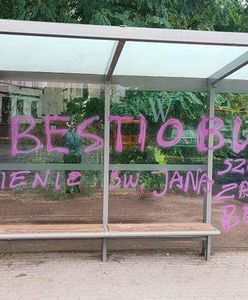 BESTIO BU
IENIE ŚW. JANA
SZ
ZA
B